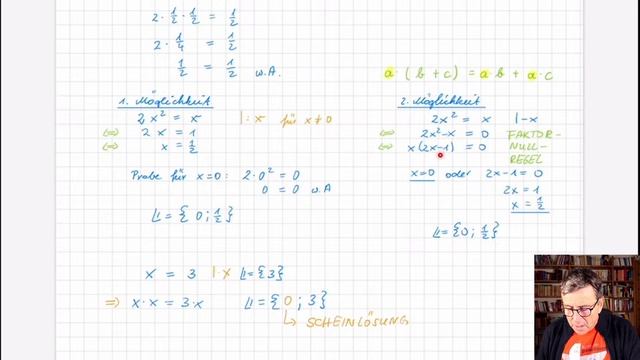 2 · 1/2 · 1/2 = 1/2
2 · 1/4 = 1/2
1/2 = 1/2 w.A.
a · (b + c) = a · b + a · c
1. Möglichkeit
2x² = x |:x für x≠0
⇔ 2x = 1
⇔ x = 1/2
Probe für x=0: 2·0² = 0
0 = 0 w.A
𝕃 = {0; 1/2}
2. Möglichkeit
2x² = x |-x
⇔ 2x²-x = 0 FAKTOR-
⇔ x(2x-1) = 0 NULL-
REGEL
x=0 oder 2x-1 = 0
2x = 1
x = 1/2
𝕃 = {0; 1/2}
x = 3 |·x 𝕃 = {3}
⇒ x·x = 3·x 𝕃 = {0; 3}
↳ SCHEINLÖSUNG